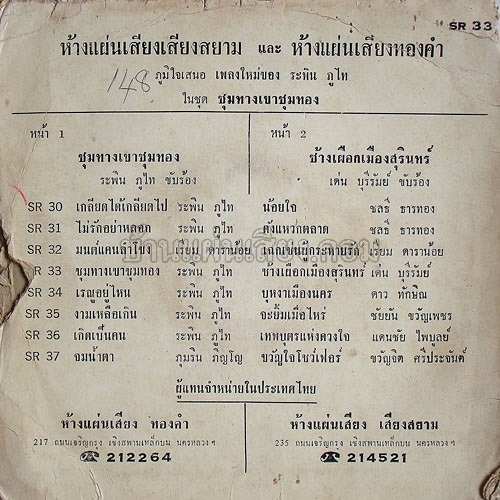 SR 33
ห้างแผ่นเสียงเสียงสยาม และ ห้างแผ่นเสียงทองคำ
148 ภูมิใจเสนอ เพลงใหม่ของ ระพิน ภูไท
ในชุด ชุมทางเขาชุมทอง
หน้า 1 หน้า 2
ชุมทางเขาชุมทอง ช้างเผือกเมืองสุรินทร์
ระพิน ภูไท ขับร้อง เด่น บุรีรัมย์ ขับร้อง
SR 30 เกลียดได้เกลียดไป ระพิน ภูไท น้อยใจ ชลธี ธารทอง
SR 31 ไม่รักอย่าหลอก ระพิน ภูไท ตังแหรกตลาด ชลธี ธารทอง
SR 32 มนต์แคนลำโขง เรียม ดาราน้อย เรียม ดาราน้อย
SR 33 ชุมทางเขาชุมทอง ระพิน ภูไท ช้างเผือกเมืองสุรินทร์ เด่น บุรีรัมย์
SR 34 เรณูอยู่ไหน ระพิน ภูไท บุหงาเมืองนคร ดาว ทักษิณ
SR 35 งามเหลือเกิน ระพิน ภูไท จะยิ้มเมื่อไหร่ ชัยยัน ขวัญเพชร
SR 36 เกิดเป็นคน ระพิน ภูไท เทพบุตรแห่งดวงใจ แดนชัย ไพบูลย์
SR 37 จมน้ำตา ภุมริน ภิญโญ ขวัญใจโชว์เฟอร์ ขวัญจิต ศรีประจันต์
บ้านแผ่นเสียง.คอม
ผู้แทนจำหน่ายในประเทศไทย
ห้างแผ่นเสียง ทองคำ ห้างแผ่นเสียง เสียงสยาม
217 ถนนเจริญกรุง เชิงสะพานเหล็กบน นครหลวง ฯ 235 ถนนเจริญกรุง เชิงสะพานเหล็กบน นครหลวง ฯ
☎ 212264 ☎ 214521